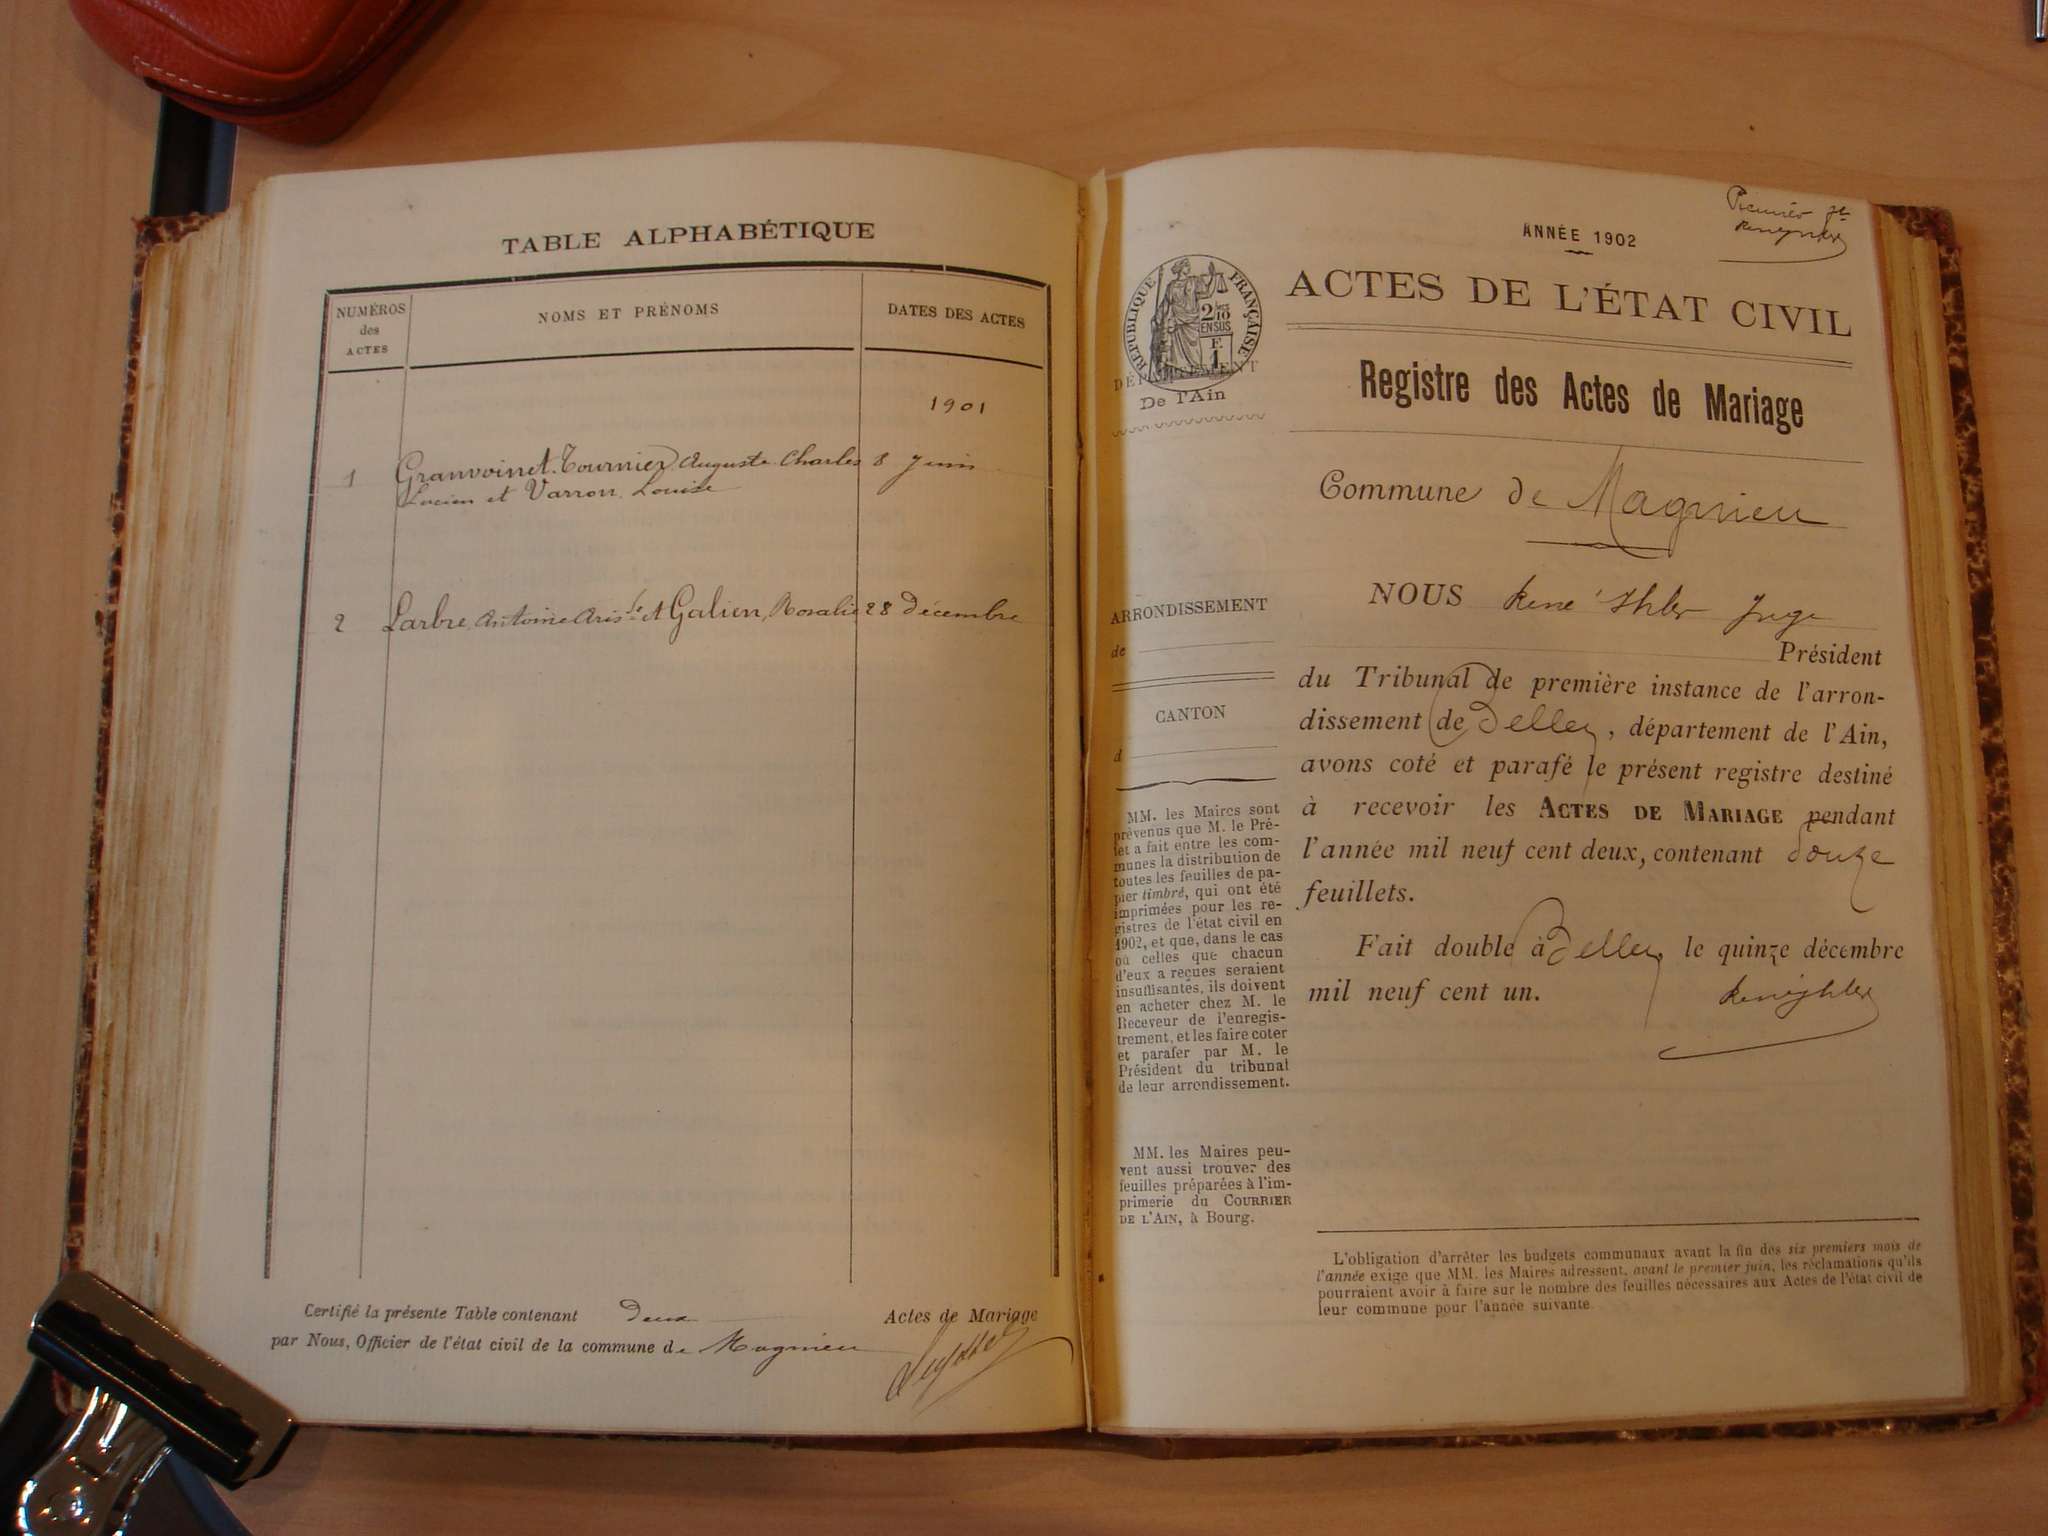 TABLE ALPHABÉTIQUE
NUMÉROS
des
ACTES
NOMS ET PRÉNOMS
DATES DES ACTES
1901
1 Granvoinet-Tournier, Auguste Charles 8 Juin
Lucien et Varron, Louise
2 Larbre, Antoine Aris.de et Galien, Rosalie 28 Décembre
Certifié la présente Table contenant deux Actes de Mariage
par Nous, Officier de l'état civil de la commune de Magnieu
Premier
ANNÉE 1902
RÉPUBLIQUE FRANÇAISE
2/10
EN SUS
F.
1
DÉPARTEMENT
De l'Ain
ACTES DE L'ÉTAT CIVIL
Registre des Actes de Mariage
Commune de Magnieu
ARRONDISSEMENT
de
CANTON
d
MM. les Maires sont
prévenus que M. le Pré-
fet a fait entre les com-
munes la distribution de
toutes les feuilles de pa-
pier timbré, qui ont été
imprimées pour les re-
gistres de l'état civil en
1902, et que, dans le cas
où celles que chacun
d'eux a reçues seraient
insuffisantes, ils doivent
en acheter chez M. le
Receveur de l'enregis-
trement, et les faire coter
et parafer par M. le
Président du tribunal
de leur arrondissement.
MM. les Maires peu-
vent aussi trouver des
feuilles préparées à l'im-
primerie du COURRIER
DE L'AIN, à Bourg.
NOUS René Juge
Président
du Tribunal de première instance de l'arron-
dissement de Belley, département de l'Ain,
avons coté et parafé le présent registre destiné
à recevoir les ACTES DE MARIAGE pendant
l'année mil neuf cent deux, contenant douze
feuillets.
Fait double à Belley, le quinze décembre
mil neuf cent un.
L'obligation d'arrêter les budgets communaux avant la fin des six premiers mois de
l'année exige que MM. les Maires adressent, avant le premier juin, les réclamations qu'ils
pourraient avoir à faire sur le nombre des feuilles nécessaires aux Actes de l'état civil de
leur commune pour l'année suivante.